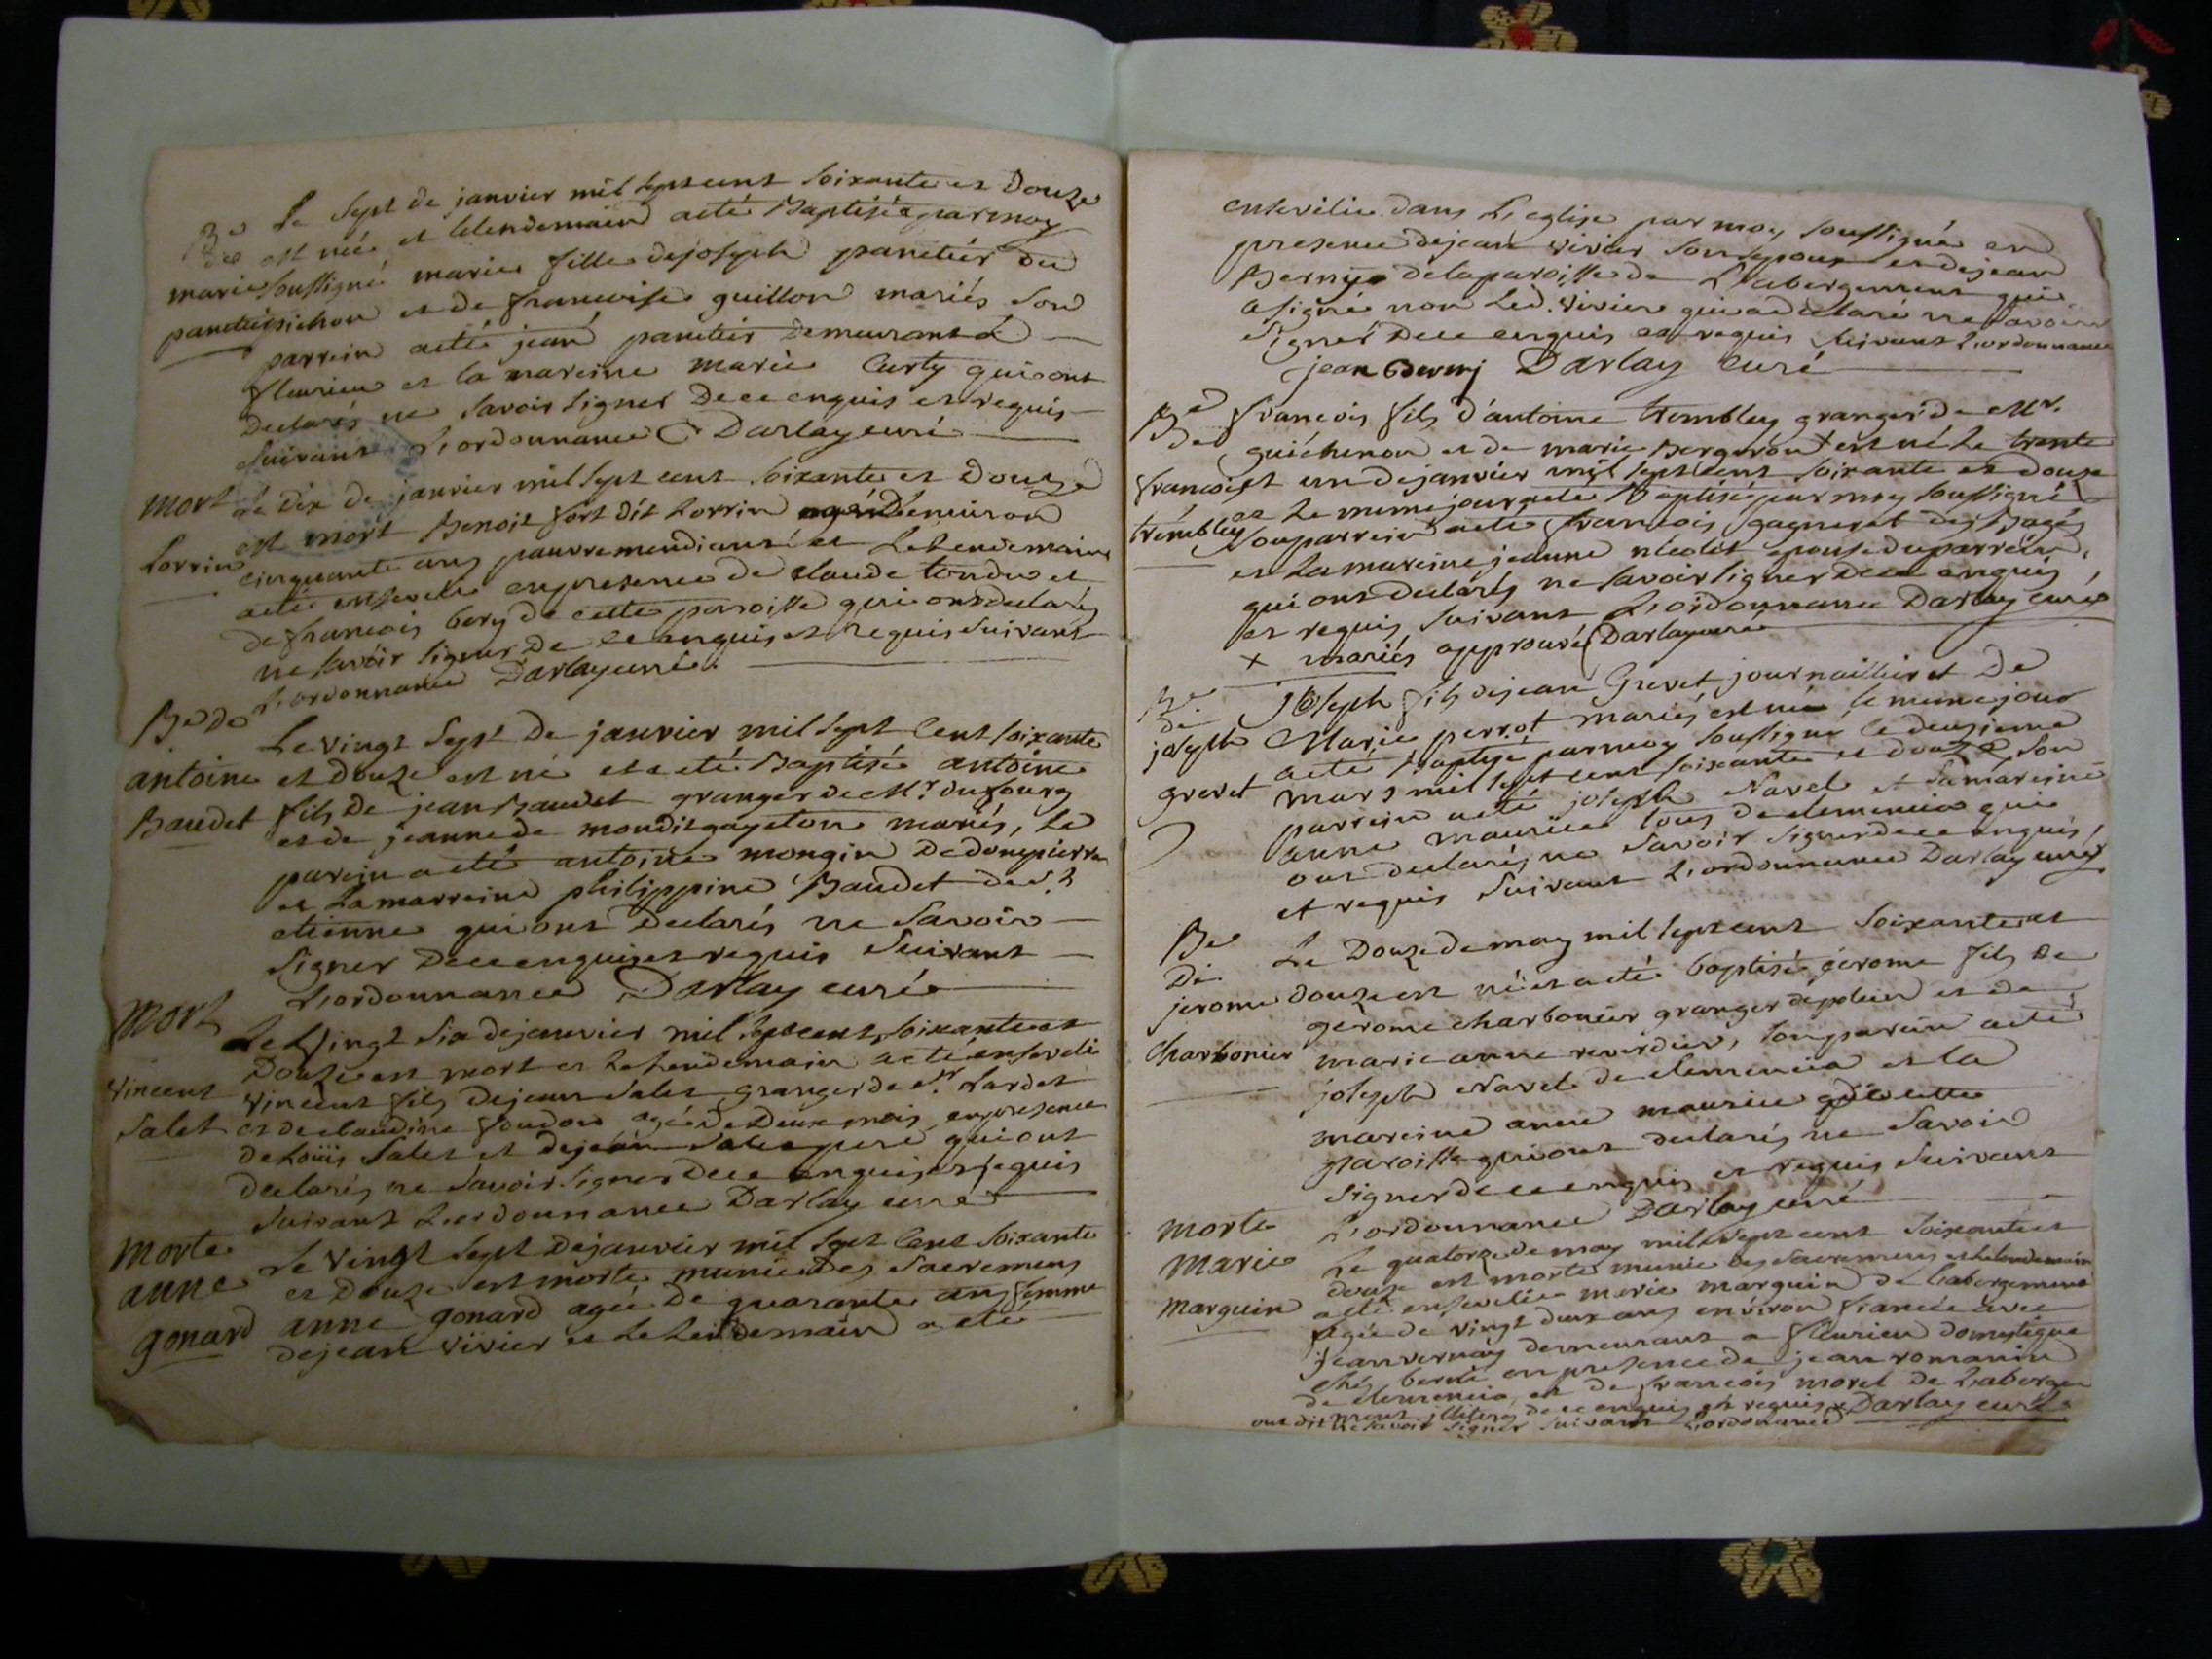 Be Le Sept de janvier mil sept cent soixante et Douze
de est née et lelendemain aeté Baptisée par moy
marie soussigné marie fille dejoseph panetier du
panetier pichon et de francoise guillon mariés son
parrein aeté jean panetier demeurant à
fleurieu et la mareine marie Curty qui ont
Declarés ne savoir signer Dece enquis et requis
suivant L'ordonnance Darlay curé
mort Le Dix de janvier mil sept cent soixante et Douze
est mort Benoit fort dit Lorrin agé Denviron
Lorrin cinquante ans pauvre mendiant et Lelendemain
aeté enseveli enpresence de claude tondu et
de francois bery de cette parroisse qui ont declarés
ne savoir signer De ce enquis et requis suivant
L'ordonnance Darlay curé
Be de
Le vingt Sept De janvier mil sept Cent soixante
antoine et douze est né et aeté Baptisé antoine
Baudet fils de jean Baudet granger de Mr. dufourg
et de jeanne de mondit gayeton mariés, Le
parein aeté antoine mongin de dompierre
et La marreine philippine Baudet de St
etienne qui ont Declarés ne Savoir
Signer Dece enquis et requis Suivant
L'ordonnance Darlay curé
Mort
Le Vingt Six dejanvier mil sept cent soixante et
Douze est mort et Lelendemain aeté enseveli
Vincent Vincent fils dejean Salet granger de Sr. Lardet
Salet et de claudine foudon agé de Deux mois enpresence
de Loüis Salet et dejean Salet pere qui ont
declarés ne Savoir signer Dece enquis et requis
Suivant L'ordonnance Darlay curé
Morte
Le Vingt Sept Dejanvier mil Sept Cent Soixante
anne et Douze est morte munie des Sacremens
gonard anne gonard agée De quarante ans femme
dejean vivier et Le Lendemain aeté
ensevelie dans L'eglise par moy soussigné en
presence dejean vivier son epoux et dejean
Berny delaparoisse de L'abergement qui
a signé non Led. vivier qui a declaré ne savoir
signer Dece enquis et requis suivant L'ordonnance
jean Berny Darlay Curé
Be
De francois fils d'antoine tremblay granger de Mr.
guichenon et de marie Bergeron + est né Le trente
francois et un dejanvier mil sept cent soixante et douze
et Le meme jour aeté Baptisé par moy soussigné
tremblay son parrein aeté francois gagneret des Bages
et La mareine jeanne epouse duparrein,
qui ont Declarés ne savoir signer Dece enquis
et requis suivant L'ordonnance Darlay curé
+ mariés approuvé Darlay curé
Be
de Joseph fils dejean Grevet journaillier et De
joseph Marie perrot mariés est né le meme jour
aeté Baptisé par moy soussigné le deuxieme
grevet mars mil sept cent soixante et douze son
parrein aeté joseph Navel et Samareine
anne maurice tous declemencia qui
ont declarés ne Savoir Signer dece enquis,
et requis Suivant L'ordonnance Darlay curé
Be
De Le Douze de may mil sept cent Soixante et
jerome douze est né et aeté baptisé gerome fils De
gerome charbonier granger et de
Charbonier marie anne reverdier, son parein aeté
joseph Navel de clemencia et la
mareine anne maurice de cette
paroisse qui ont declarés ne Savoir
Signer de ce enquis et requis Suivant
L'ordonnance Darlay curé
morte
Marie Le quatorze De may mil Sept cent Soixante et
douze est morte munie des Sacremens et le lendemain
Marguin aeté ensevelie marie marguin de L'abergement
agée de vingt deux ans environ fiancée avec
jean vernay demeurant a fleurieu domestique
chés bernie en presence de jean romanin
de clemencia, et de francois morel De L'aberge
ment illiterés de ce enquis et requis Darlay curé
ont dit ne savoir signer suivant L'ordonnance